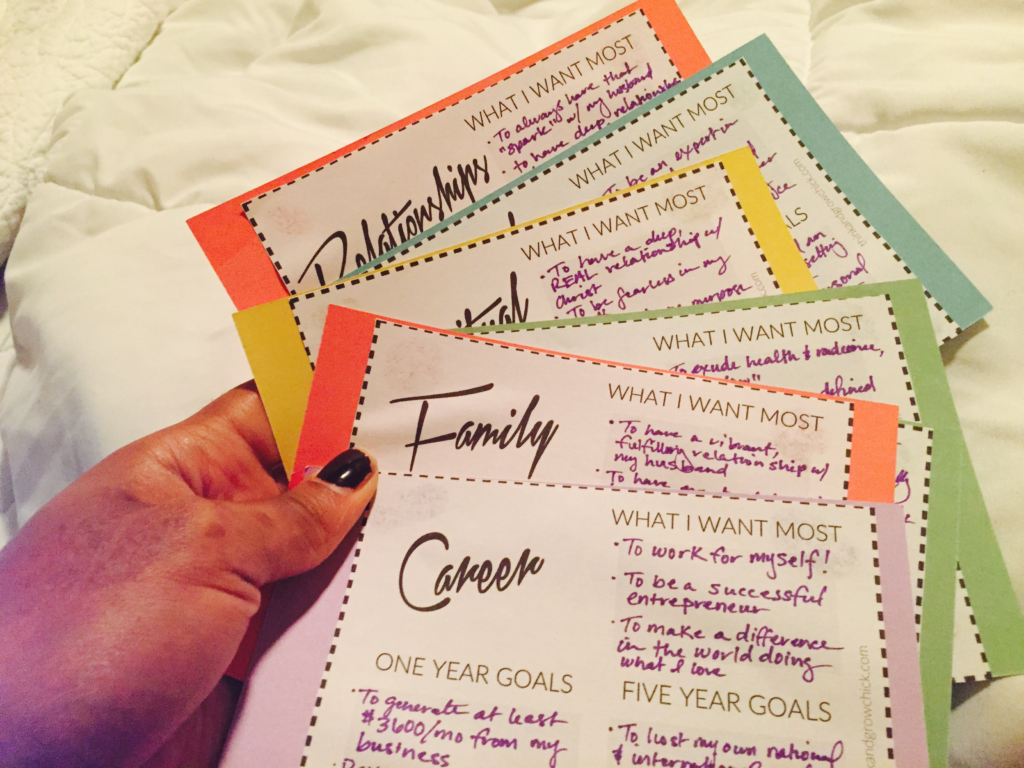 WHAT I WANT MOST
• To always have that
"spark" w/ my husband
• to have deep relationships
Relationships
WHAT I WANT MOST
To be an expert in
thinkandgrowchick.com
WHAT I WANT MOST
• To have a deep,
REAL relationship w/
Christ
• To be fearless in my
purpose
WHAT I WANT MOST
To exude health & radiance,
defined
Family
WHAT I WANT MOST
• To have a vibrant,
fulfilling relationship w/
my husband
• To have an
Career
WHAT I WANT MOST
• To work for myself!
• To be a successful
entrepreneur
• To make a difference
in the world doing
what I love
ONE YEAR GOALS
• To generate at least
$3600/mo from my
business
FIVE YEAR GOALS
• To host my own national
&
andgrowchick.com